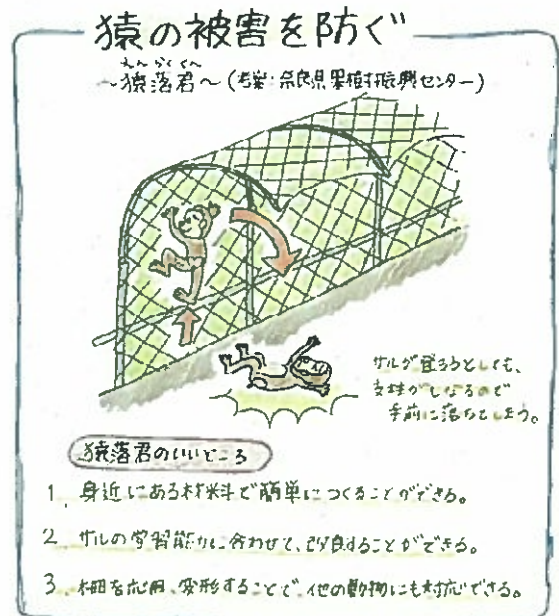 猿の被害を防ぐ
えんらくくん
～猿落君～(考案:奈良県果樹振興センター)
サルが登ろうとしても、
支柱がしなるので
手前に落ちてしまう。
猿落君のいいところ
1. 身近にある材料で簡単につくることができる。
2. サルの学習能力に合わせて、改良することができる。
3. 柵を応用、変形することで、他の動物にも対応できる。